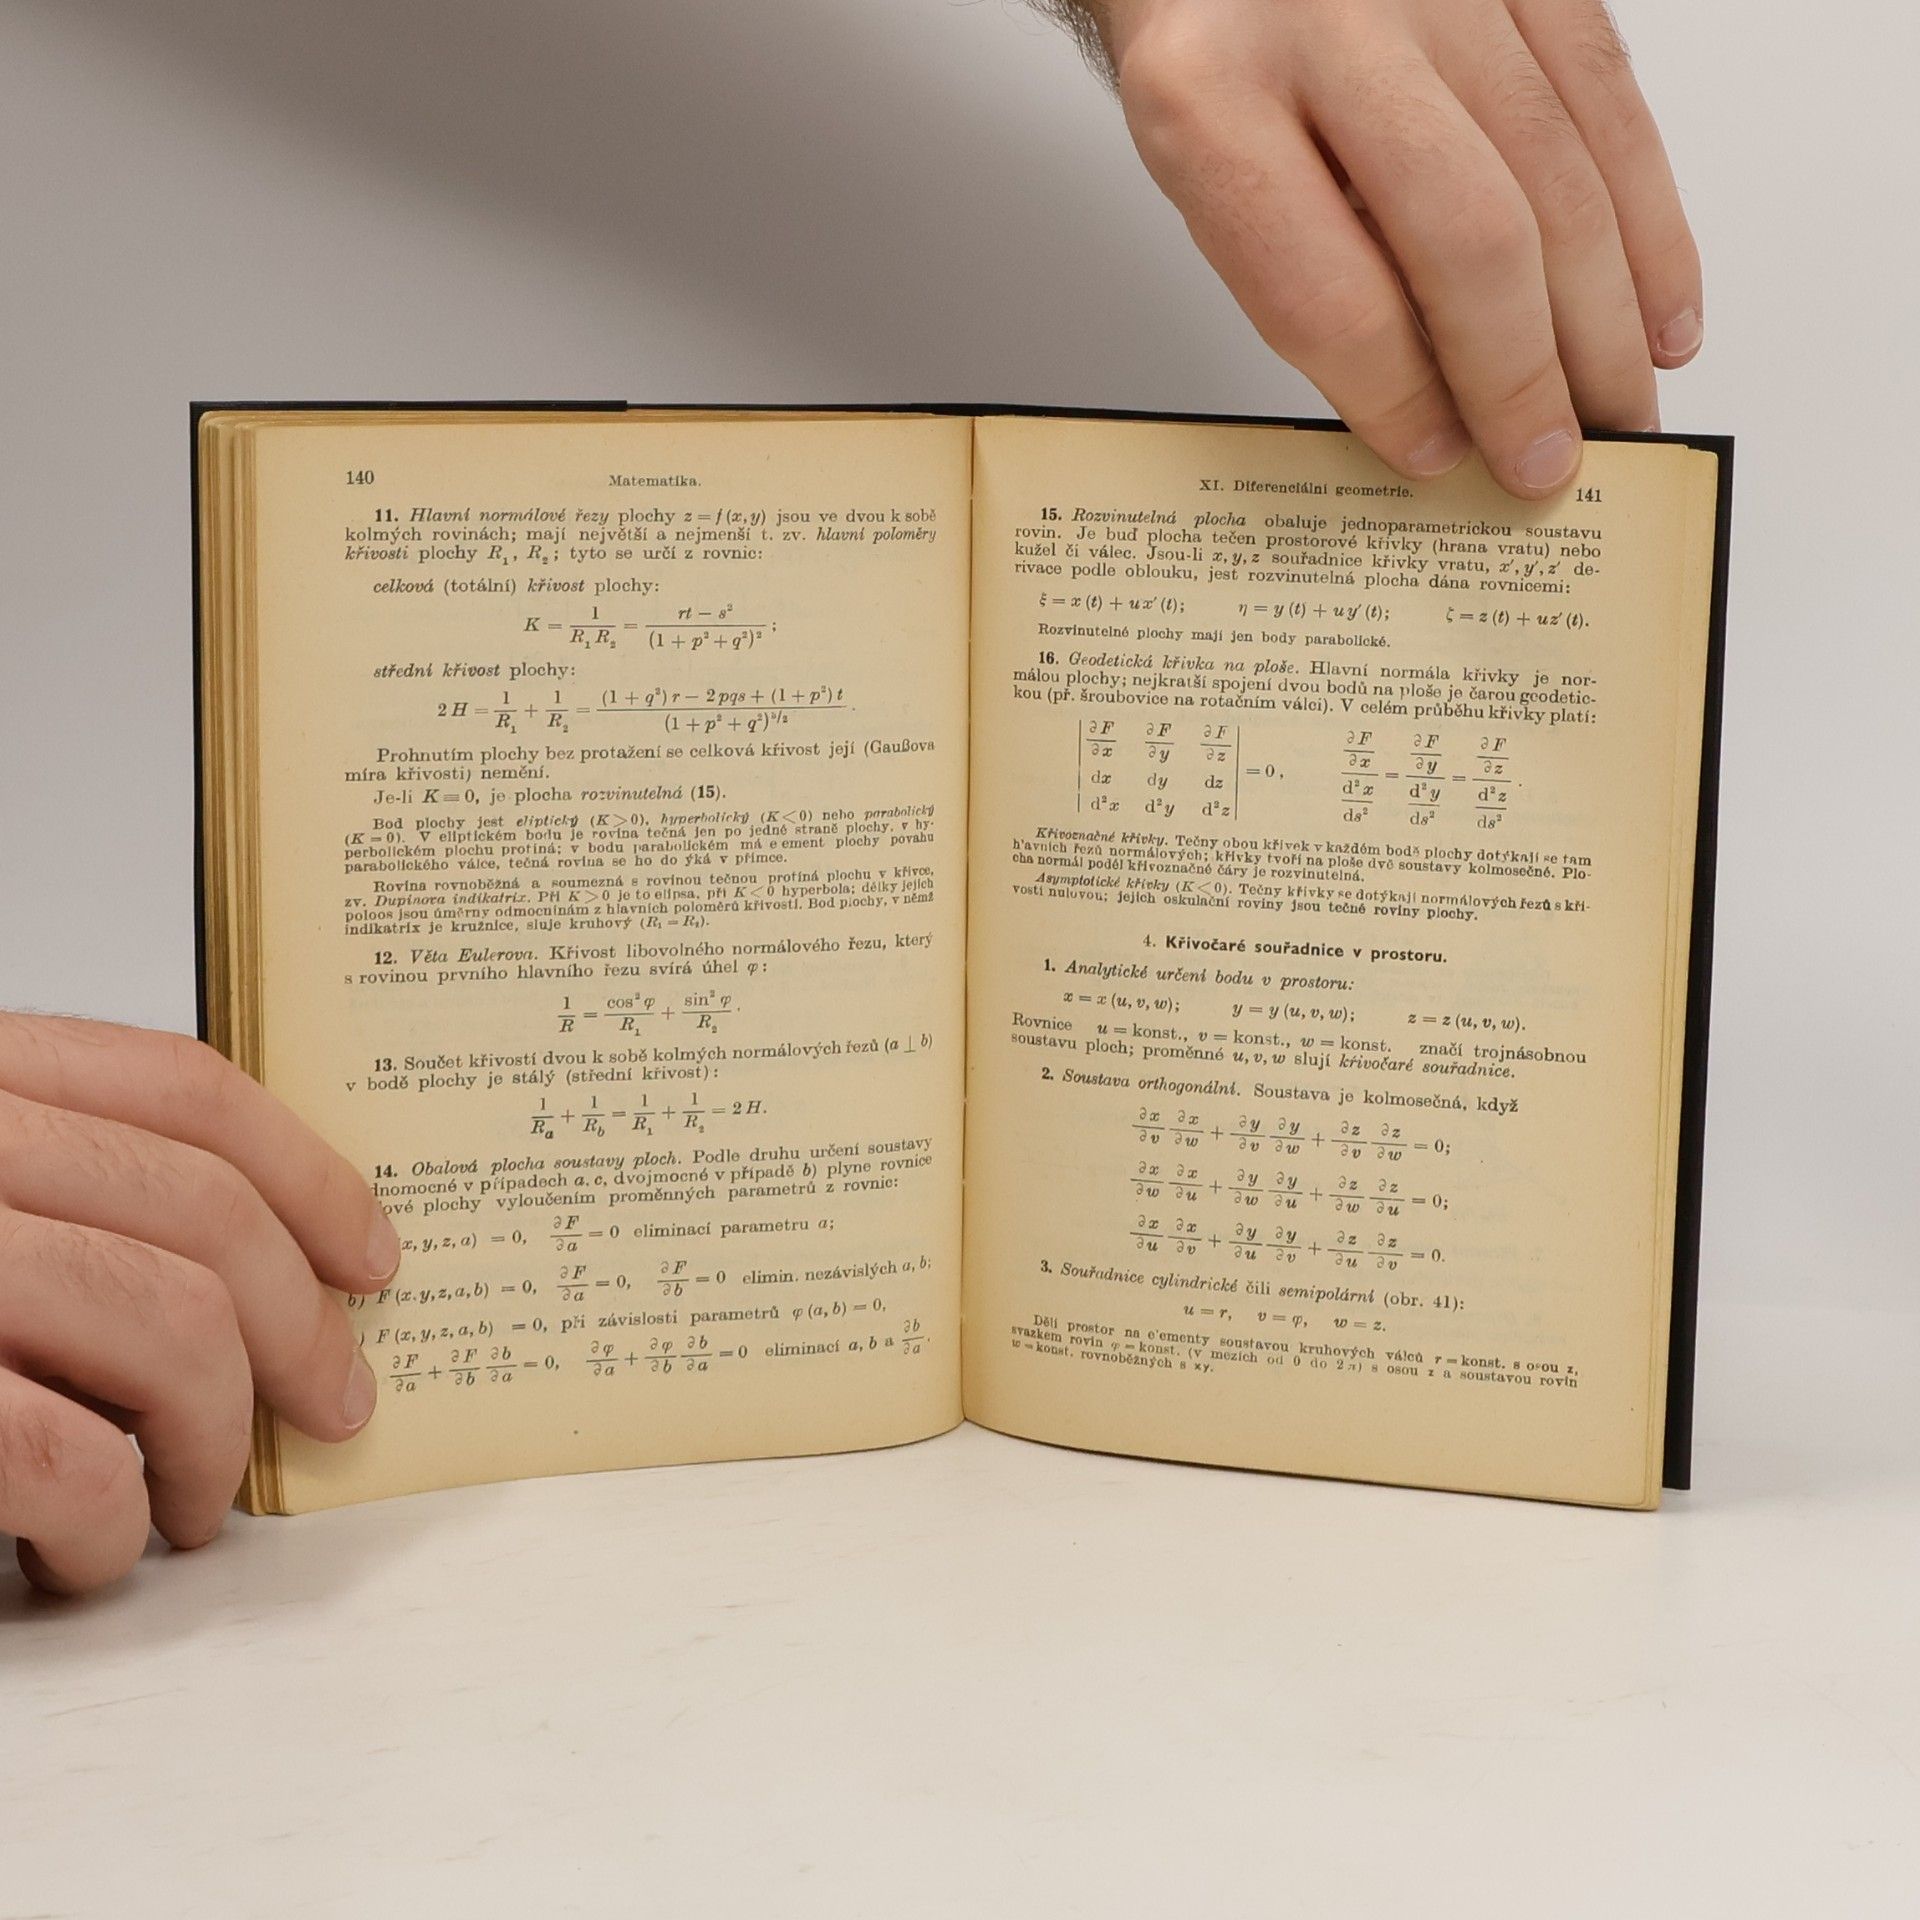 140
Matematika.
11. Hlavní normálové řezy plochy z = f (x, y) jsou ve dvou k sobě
kolmých rovinách; mají největší a nejmenší t. zv. hlavní poloměry
křivosti plochy R₁, R₂; tyto se určí z rovnic:
celková (totální) křivost plochy:
K = 1/(R₁ R₂) = (rt − s²)/(1 + p² + q²)² ;
střední křivost plochy:
2 H = 1/R₁ + 1/R₂ = ((1 + q²) r − 2 pqs + (1 + p²) t)/(1 + p² + q²)^(3/2) .
Prohnutím plochy bez protažení se celková křivost její (Gaußova
míra křivosti) nemění.
Je-li K ≡ 0, je plocha rozvinutelná (15).
Bod plochy jest eliptický (K > 0), hyperbolický (K < 0) nebo parabolický
(K = 0). V eliptickém bodu je rovina tečná jen po jedné straně plochy, v hy-
perbolickém plochu protíná; v bodu parabolickém má e ement plochy povahu
parabolického válce, tečná rovina se ho do ýká v přímce.
Rovina rovnoběžná a soumezná s rovinou tečnou protíná plochu v křivce,
zv. Dupinova indikatrix. Při K > 0 je to elipsa, při K < 0 hyperbola; délky jejich
poloos jsou úměrny odmocninám z hlavních poloměrů křivosti. Bod plochy, v němž
indikatrix je kružnice, sluje kruhový (R₁ = R₂).
12. Věta Eulerova. Křivost libovolného normálového řezu, který
s rovinou prvního hlavního řezu svírá úhel φ:
1/R = cos² φ/R₁ + sin² φ/R₂ .
13. Součet křivostí dvou k sobě kolmých normálových řezů (a ⊥ b)
v bodě plochy je stálý (střední křivost):
1/Rₐ + 1/R_b = 1/R₁ + 1/R₂ = 2 H.
14. Obalová plocha soustavy ploch. Podle druhu určení soustavy
dnomocné v případech a, c, dvojmocné v případě b) plyne rovnice
ové plochy vyloučením proměnných parametrů z rovnic:
x, y, z, a) = 0, ∂F/∂a = 0 eliminací parametru a;
b) F (x, y, z, a, b) = 0, ∂F/∂a = 0, ∂F/∂b = 0 elimin. nezávislých a, b;
) F (x, y, z, a, b) = 0, při závislosti parametrů φ (a, b) = 0,
∂F/∂a + ∂F/∂b ∂b/∂a = 0, ∂φ/∂a + ∂φ/∂b ∂b/∂a = 0 eliminací a, b a ∂b/∂a .
XI. Diferenciální geometrie.
141
15. Rozvinutelná plocha obaluje jednoparametrickou soustavu
rovin. Je buď plocha tečen prostorové křivky (hrana vratu) nebo
kužel či válec. Jsou-li x, y, z souřadnice křivky vratu, x′, y′, z′ de-
rivace podle oblouku, jest rozvinutelná plocha dána rovnicemi:
ξ = x (t) + u x′ (t); η = y (t) + u y′ (t); ζ = z (t) + u z′ (t).
Rozvinutelné plochy mají jen body parabolické.
16. Geodetická křivka na ploše. Hlavní normála křivky je nor-
málou plochy; nejkratší spojení dvou bodů na ploše je čarou geodetic-
kou (př. šroubovice na rotačním válci). V celém průběhu křivky platí:
| ∂F/∂x ∂F/∂y ∂F/∂z |
| dx dy dz | = 0, (∂F/∂x)/(d²x/ds²) = (∂F/∂y)/(d²y/ds²) = (∂F/∂z)/(d²z/ds²) .
| d²x d²y d²z |
Křivoznačné křivky. Tečny obou křivek v každém bodě plochy dotýkají se tam
h'avních řezů normálových; křivky tvoří na ploše dvě soustavy kolmosečné. Plo-
cha normál podél křivoznačné čáry je rozvinutelná.
Asymptotické křivky (K < 0). Tečny křivky se dotýkají normálových řezů s kři-
vostí nulovou; jejich oskulační roviny jsou tečné roviny plochy.
4. Křivočaré souřadnice v prostoru.
1. Analytické určení bodu v prostoru:
x = x (u, v, w); y = y (u, v, w); z = z (u, v, w).
Rovnice u = konst., v = konst., w = konst. značí trojnásobnou
soustavu ploch; proměnné u, v, w slují křivočaré souřadnice.
2. Soustava orthogonální. Soustava je kolmosečná, když
∂x/∂v ∂x/∂w + ∂y/∂v ∂y/∂w + ∂z/∂v ∂z/∂w = 0;
∂x/∂w ∂x/∂u + ∂y/∂w ∂y/∂u + ∂z/∂w ∂z/∂u = 0;
∂x/∂u ∂x/∂v + ∂y/∂u ∂y/∂v + ∂z/∂u ∂z/∂v = 0.
3. Souřadnice cylindrické čili semipolární (obr. 41):
u = r, v = φ, w = z.
Dělí prostor na e'ementy soustavou kruhových válců r = konst. s osou z,
svazkem rovin φ = konst. (v mezích od 0 do 2 π) s osou z a soustavou rovin
w = konst. rovnoběžných s xy.